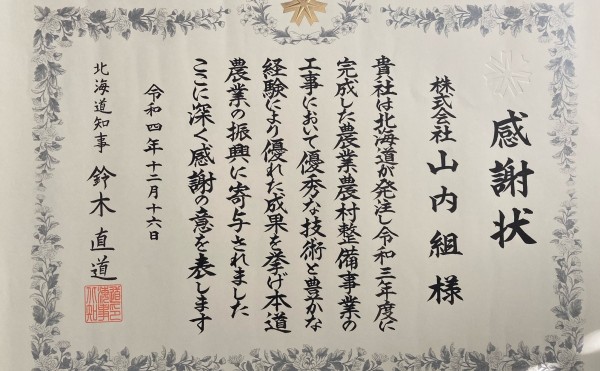 感謝状
株式会社 山内組 様
貴社は北海道が発注し令和三年度に
完成した農業農村整備事業の
工事において優秀な技術と豊かな
経験により優れた成果を挙げ本道
農業の振興に寄与されました
ここに深く感謝の意を表します
令和四年十二月十六日
北海道知事 鈴木直道